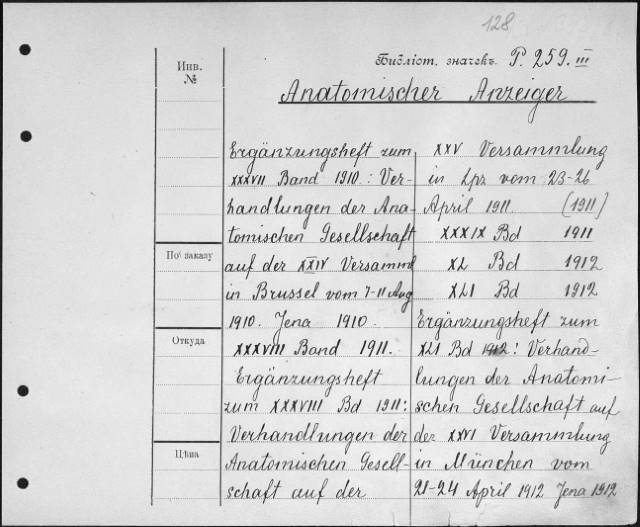 128
Библіот. значекъ P. 259. III
Anatomischer Anzeiger
Инв.
№
По заказу
Откуда
Цѣна
Ergänzungsheft zum
XXXVII Band 1910.: Ver-
handlungen der Ana-
tomischen Gesellschaft
auf der XXIV Versamml
in Brussel vom 7-11 Aug
1910. Jena 1910.
XXXVIII Band 1911.
Ergänzungsheft
zum XXXVIII Bd 1911:
Verhandlungen der
Anatomischen Gesell-
schaft auf der
XXV Versammlung
in Lpz vom 23-26
April 1911. (1911)
XXXIX Bd 1911
XL Bd 1912
XLI Bd 1912
Ergänzungsheft zum
XLI Bd 1912: Verhand-
lungen der Anatomi-
schen Gesellschaft auf
der XXVI Versammlung
in München vom
21-24 April 1912 Jena 1912